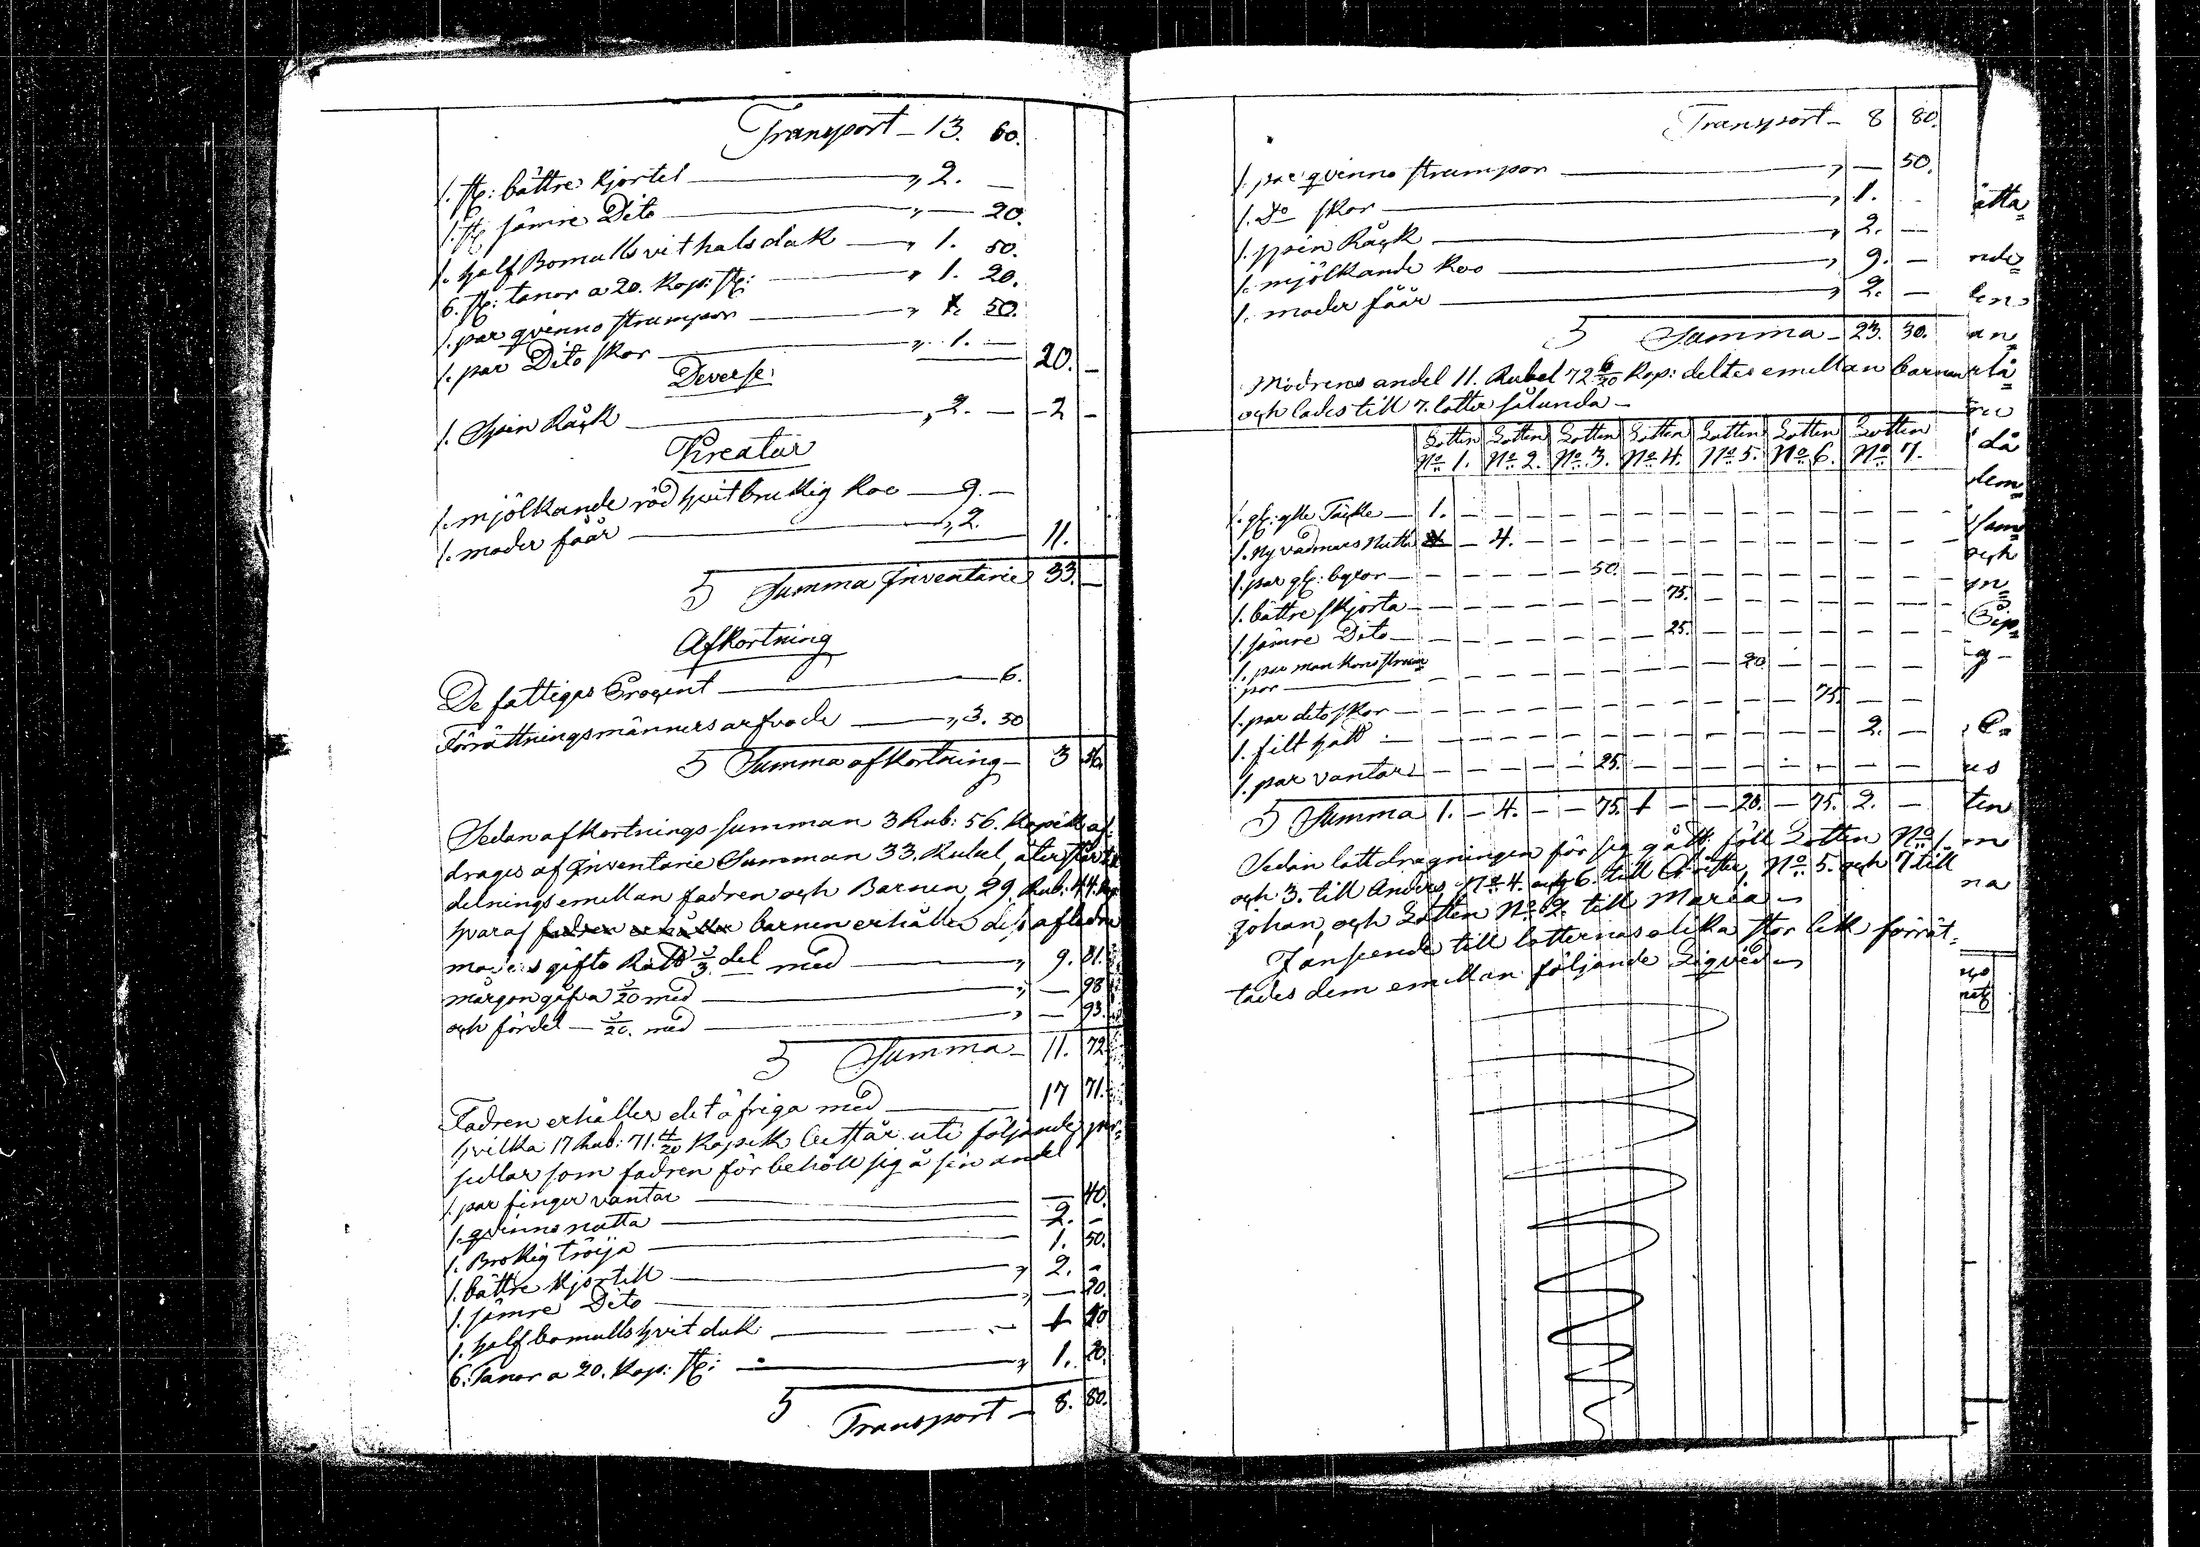 Transport – 13. 60.
1. st: bättre kjortel „ 2. —
1. st: sämre Dito „ — 20.
1. half Bomulls vit halsduk „ 1. 50.
6. st: tanor a 20. Kop: st: „ 1. 20.
1. par qvinno strumpor „ 50.
1. par Dito skor „ 1. — 20. —
Deverse:
1. Spin Råck „ 2. — – 2 –
Kreatur
1. mjölkande röd hvit brukig koo — 9. –
1. moder fåår „ 2. 11.
Summa Inventarie 33. —
Afkortning
De fattigas Procent 6.
Förrättningsmänners arfvode „ 3. 50
Summa afkortning – 3 56.
Sedan afkortnings summan 3 Rub: 56. Kopek af-
drages af Inventarie Summan 33. Rubel, återstår till
delnings emellan fadren och Barnen, 29. Rub: 44. Kop:
hvaraf fadren erhåller barnen erhåller des aflidna
moders gifto Rätt 1/3 del med „ 9. 81.
märgongåfva 1/20 med „ — 98
och fördel — 1/20. med „ — 93.
Summa – 11. 72
Fadren erhåller det öfriga med 17 71.
hvilka 17 Rub: 71. 4/20 Kopek består uti följande per-
sedlar som fadren för behöll sig å sin andel
1. par finger vantar — 40.
1. qvinno natta 2. –
1. Brokig tröija 1. 50.
1. bättre kjortill „ 2. –
1. sämre Dito „ — 20.
1. half bomulls hvit duk
6. Tanor a 20. Kop: st: „ 1. 20.
Transport – 8. 80.
Transport – 8 80.
1. par qvinno strumpor „ — 50.
1. Do skor „ 1. –
1. spin Råck „ 2. —
1. mjölkande koo „ 9. –
1. moder fåår „ 2. –
Summa – 23. 30.
Modrens andel 11. Rubel 72 6/20 Kop: deltes emellan barnen
och lades till 7. lotter sålunda –
Lotten Lotten Lotten Lotten Lotten Lotten Lotten
No 1. No 2. No 3. No 4. No 5. No 6. No 7.
1. Täcke — 1. –
1. Ny vadmars — 4. –
1. par byxor — 50.
1. bättre skjorta — 75.
1. sämre Dito — 25.
1. par man kons strum
por — 20
1. par dito skor — 75.
1. filt hatt — 2. –
1. par vantar — 25.
Summa 1. – 4. – – 75. 1 – – 20. – 75. 2. –
Sedan lottdragningen för sig gått, föll Lotten No 1.
och 3. till Anders, No 4. och 6. till No 5. och 7 till
Johan, och Lotten No 2. till Maria –
I anseende till lotternas olika storlek förrät-
tades dem emellan följande Liqvid –